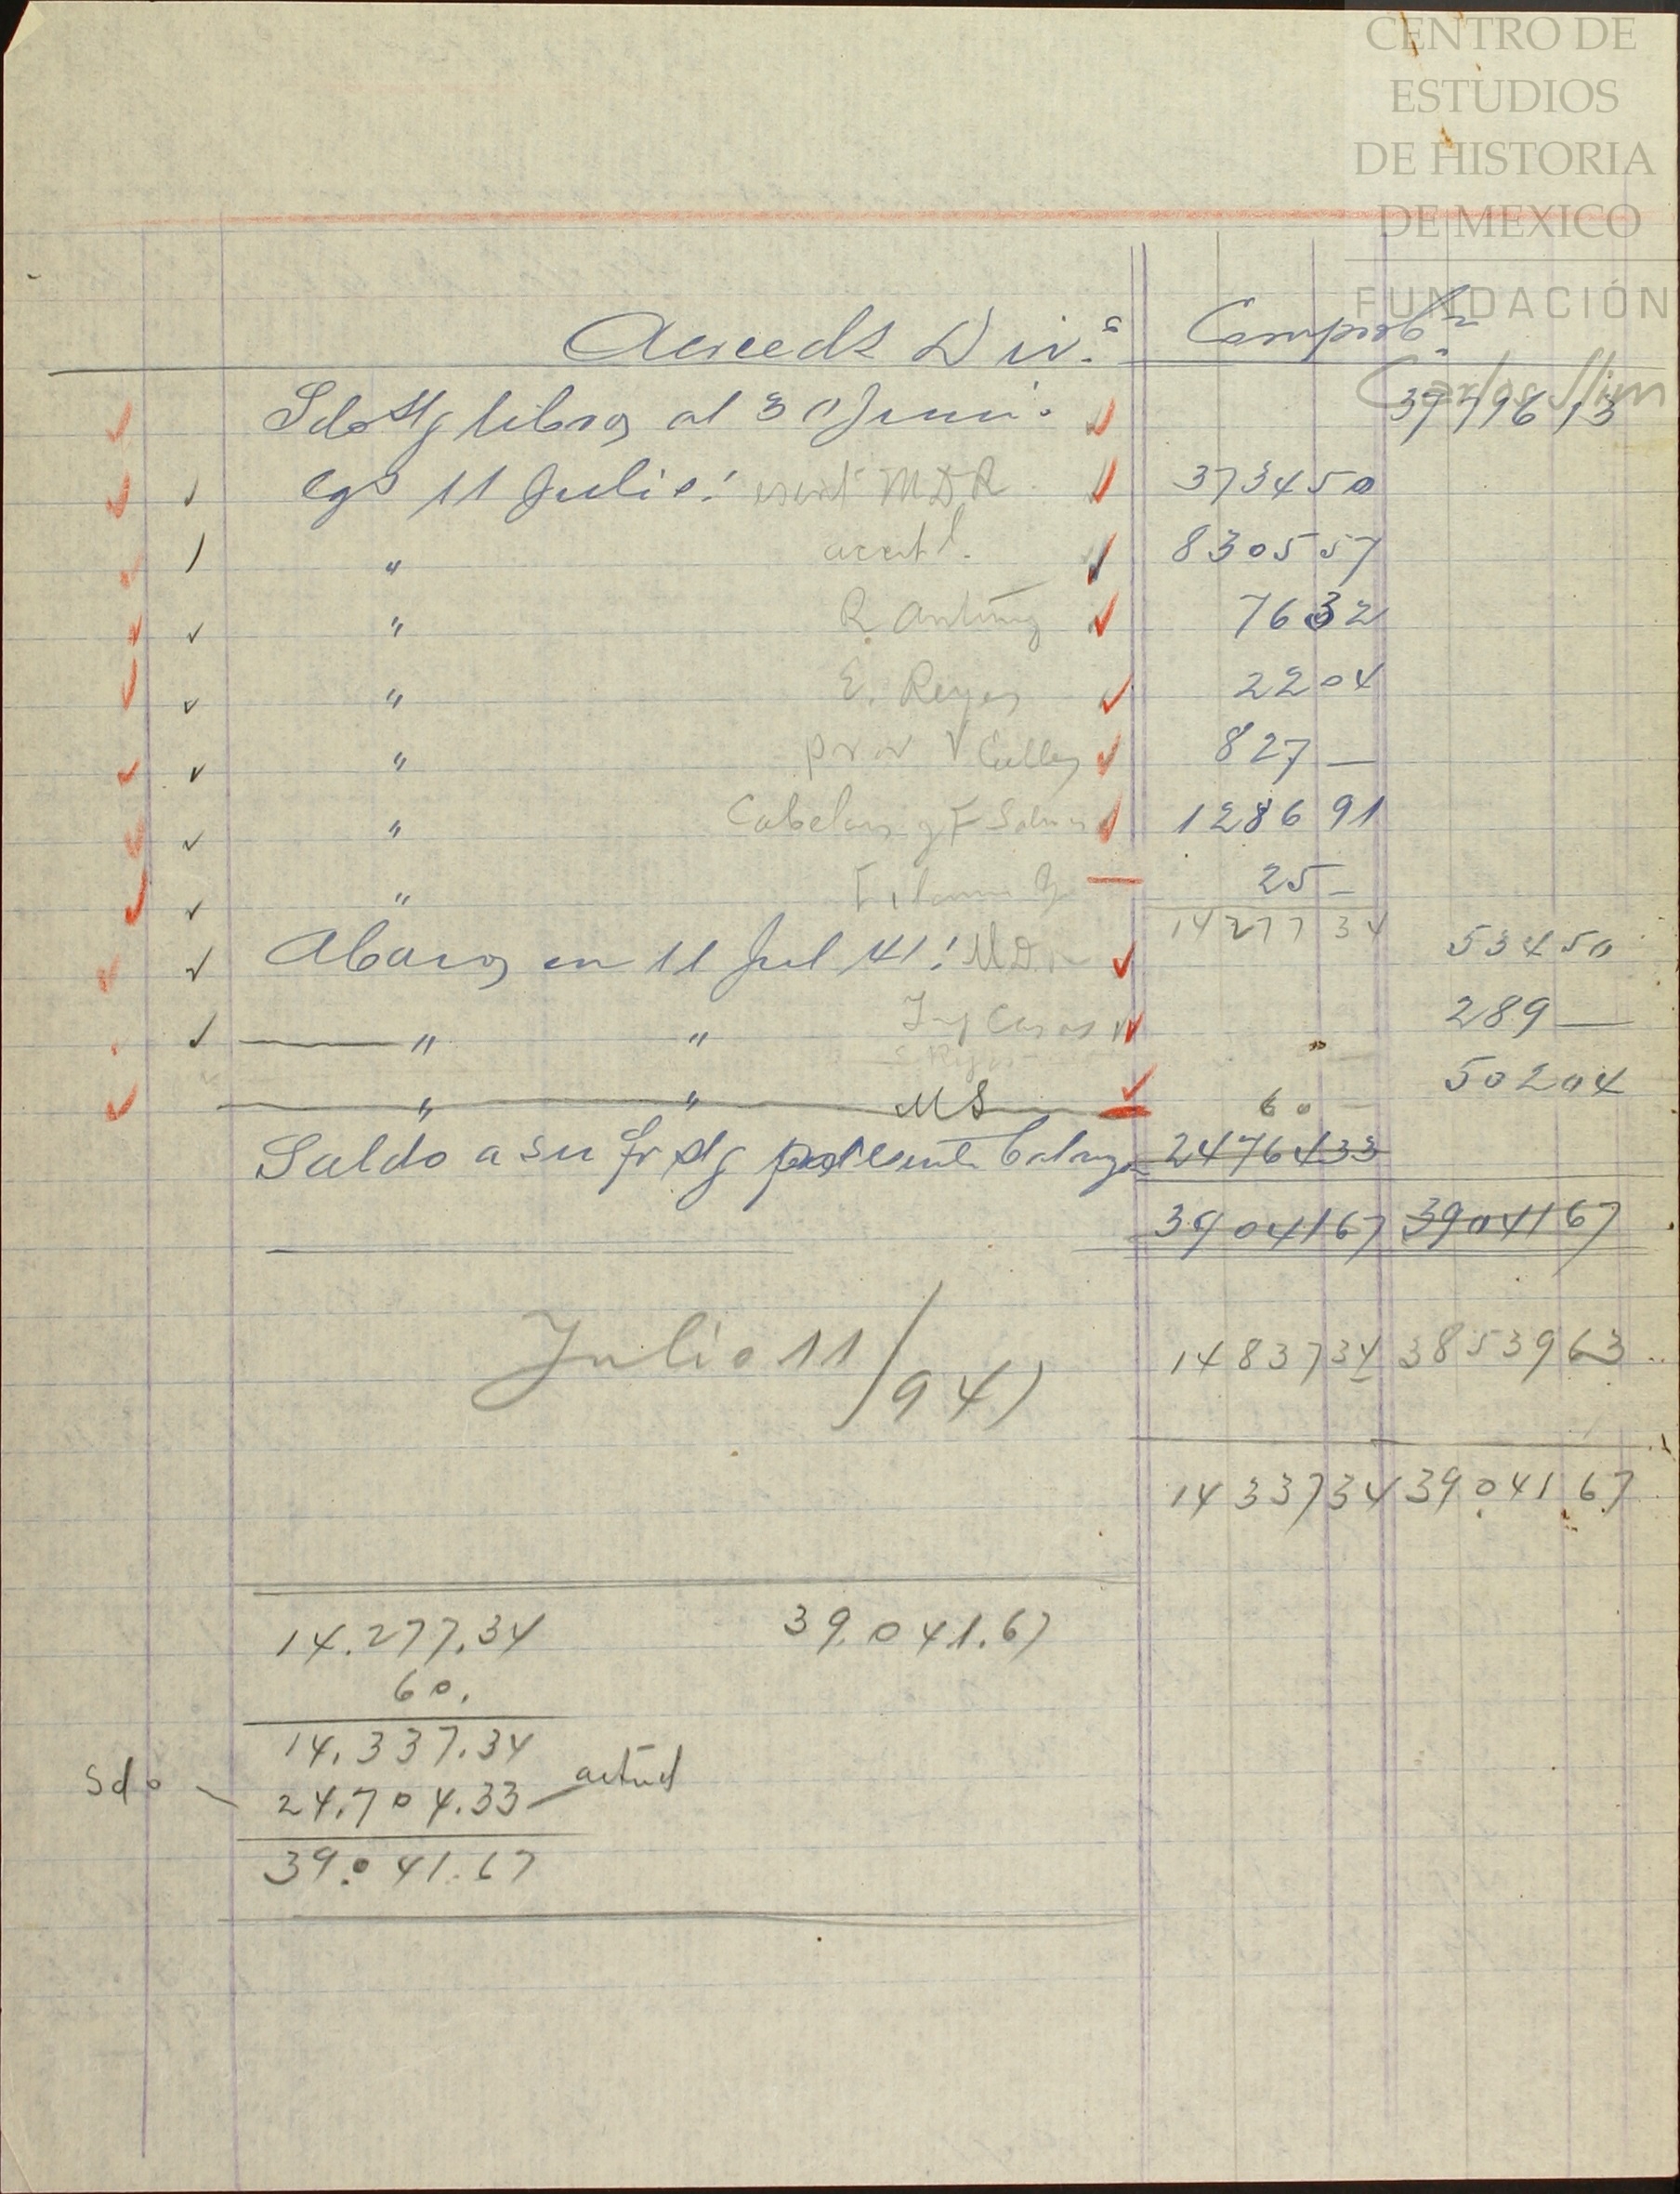 CENTRO DE
ESTUDIOS
DE HISTORIA
DE MEXICO
FUNDACIÓN
Carlos Slim
Acreeds Divs Comprobn
Sdo sg libros al 30 Junio 3771613
cgs 11 Julio: MDR 373450
" 830557
" R. 7632
" E. Reyes 2204
" 827 —
" 128691
" 25 —
1427734
Abonos en 11 Jul 41: 53450
" " Ing Casas 289 —
" " MS 60 — 50204
Saldo a su fr sg presente 2476433
3904167 3904167
Julio 11/941 1483734 3853963
1433734 3904167
14.277.34 39.041.67
60.
14.337.34
Sdo 24.704.33 actual
39.041.67